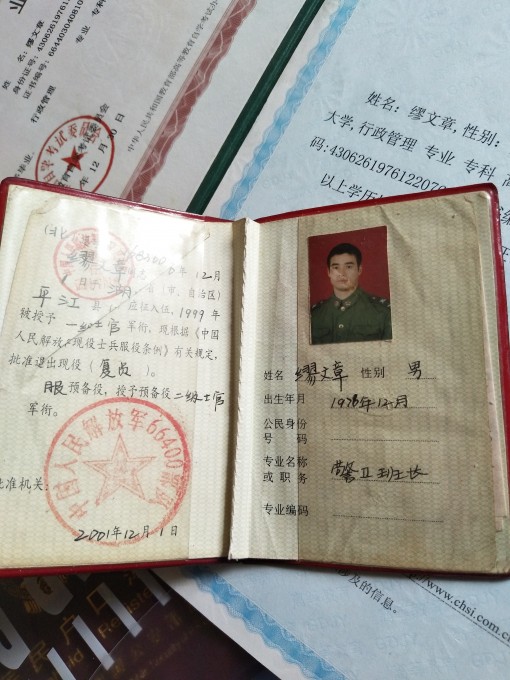 业
姓 名: 缪文章
身份证号: 430626197612
证书编号: 66440304081
行政管理 专业 专科
12 月
中华人民共和国教育部高等教育自学考试办
姓名: 缪文章, 性别:
大学, 行政管理 专业 专科 高
码:43062619761220
以上学历
缪文章
年 12 月
湖 (市、自治区)
平江 县 应征入伍, 1999 年
被授予 一级士官 军衔, 现根据《中国
人民解放军现役士兵服役条例》有关规定,
批准退出现役(复员)。
服预备役, 授予预备役二级士官
军衔。
中国人民解放军66400部队
批准机关:
2001年12月1日
姓名 缪文章 性别 男
出生年月 1976年12月
公民身份
号 码
专业名称
或 职务 警卫班班长
专业编码
及的信息。
www.chsi.com.cn
居民户口